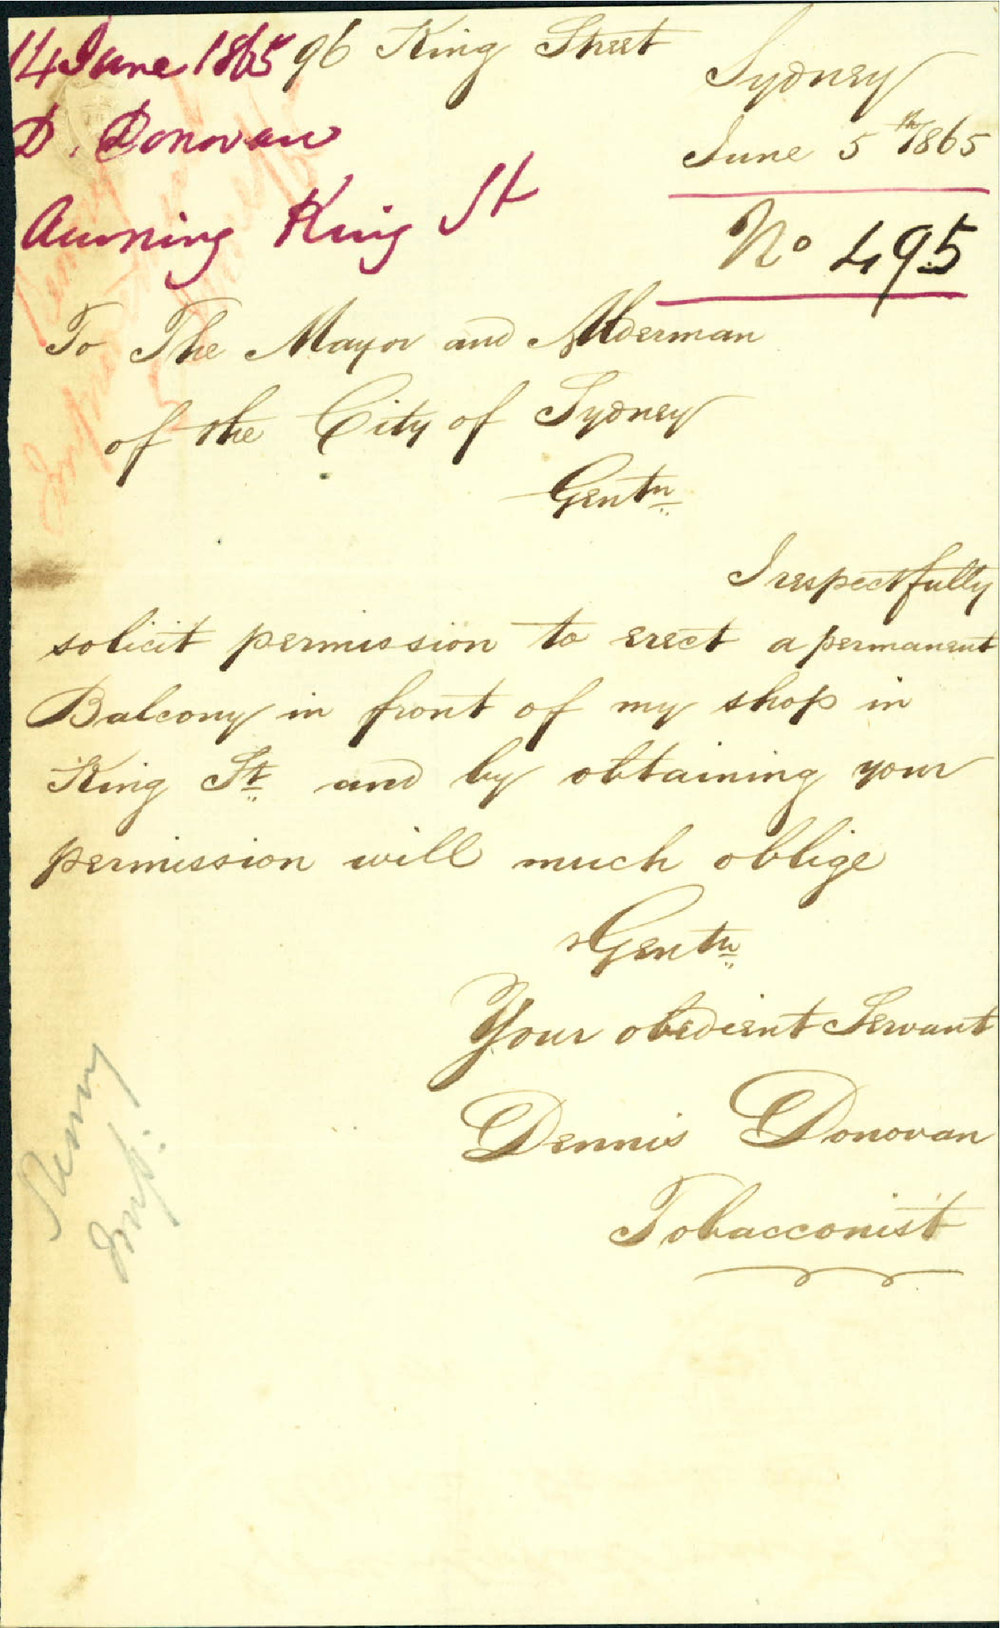 14 June 1865
D. Donovan
Awning King St
96 King Street
Sydney
June 5th 1865
No 495
To The Mayor and Alderman
of the City of Sydney
Gentn
I respectfully
solicit permission to erect a permanent
Balcony in front of my shop in
King St and by obtaining your
permission will much oblige
Gentn
Your obedient Servant
Dennis Donovan
Tobacconist